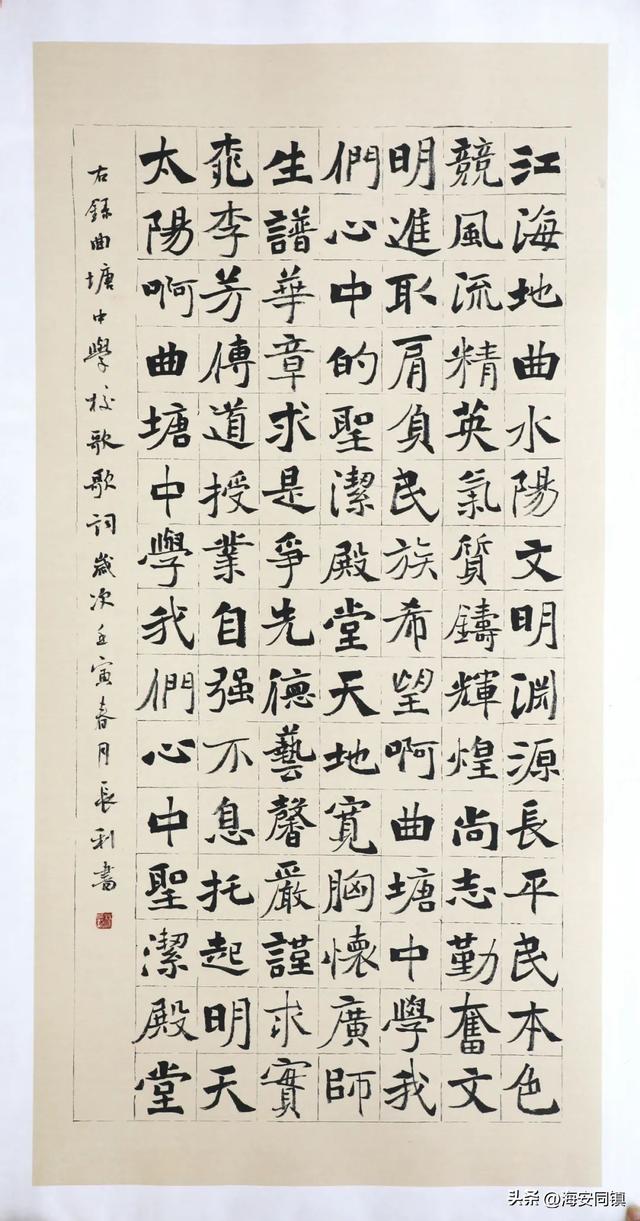 江海地曲水陽文明淵源長平民本色
競風流精英氣質鑄輝煌尚志勤奮文
明進取肩負民族希望啊曲塘中學我
們心中的聖潔殿堂天地寬胸懷廣師
生譜華章求是爭先德藝馨嚴謹求實
桃李芳傳道授業自强不息托起明天
太陽啊曲塘中學我們心中聖潔殿堂
右錄曲塘中學校歌歌詞歲次壬寅春月長利書
头条 @海安同镇